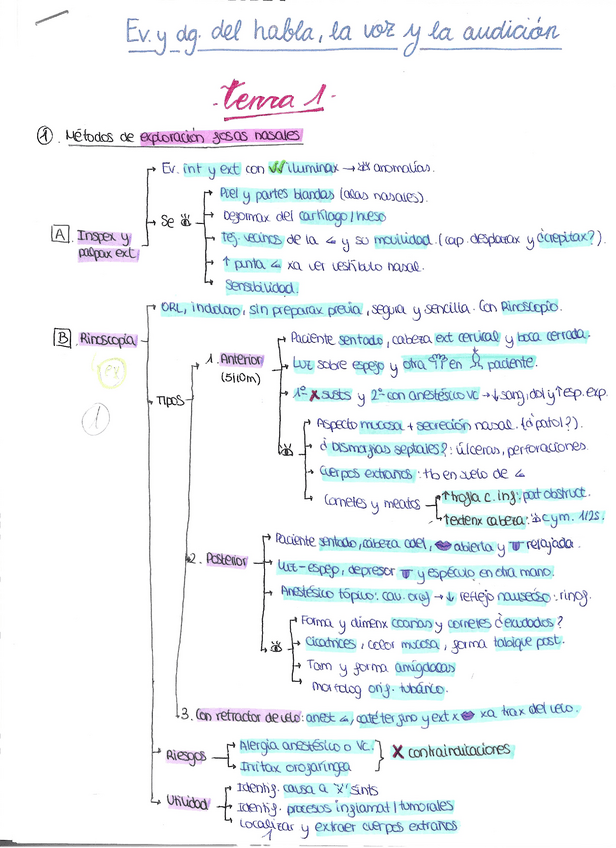 Ev. y dg. del habla, la voz y la audición
tema 1
1. Métodos de exploración fosas nasales
Ev. int y ext con iluminax → anomalías.
Se
Piel y partes blandas (alas nasales).
Deformax del cartílago/hueso
Tej. vecinos de la y su movilidad. (cap. desplazax y ¿crepitax?).
↑ punta xa ver vestíbulo nasal.
Sensibilidad.
A Inspex y
palpax ext.
ORL, indoloro, sin preparax previa, segura y sencilla. Con Rinoscopio.
B Rinoscopia
TIPOS
1. Anterior
(5/10m)
Paciente sentado, cabeza ext cervical y boca cerrada.
Luz sobre espejo y otra en paciente.
1º x susts y 2º con anestésico vc → ↓ sang, dol y ↑ esp. exp.
Aspecto mucosa + secreción nasal. (¿patol?).
¿Dismorfias septales?: úlceras, perforaciones.
Cuerpos extraños: tb en suelo de
Cornetes y meatos
↑ trofia c. inf: pat obstruct.
↑ extenx cabeza: c y m. 1/2s.
2. Posterior
Paciente sentado, cabeza adel, abierta y relajada.
Luz-espejo, depresor y espéculo en otra mano.
Anestésico tópico: cav. oraf → ↓ reflejo nauseoso: rinof.
Forma y dimenx coanas y cornetes ¿acodados?
Cicatrices, color mucosa, forma tabique post.
Tam y forma amígdalas
morfolog orif. tubárico.
3. Con retractor de velo: anest, catéter fino y ext x xa trax del velo.
Riesgos
Alergia anestésico o vc.
Irritax orofaríngea
X contraindicaciones
Utilidad
Identif. causa a "x" sínts
Identif. procesos inflamat/tumorales
Localizar y extraer cuerpos extraños
1